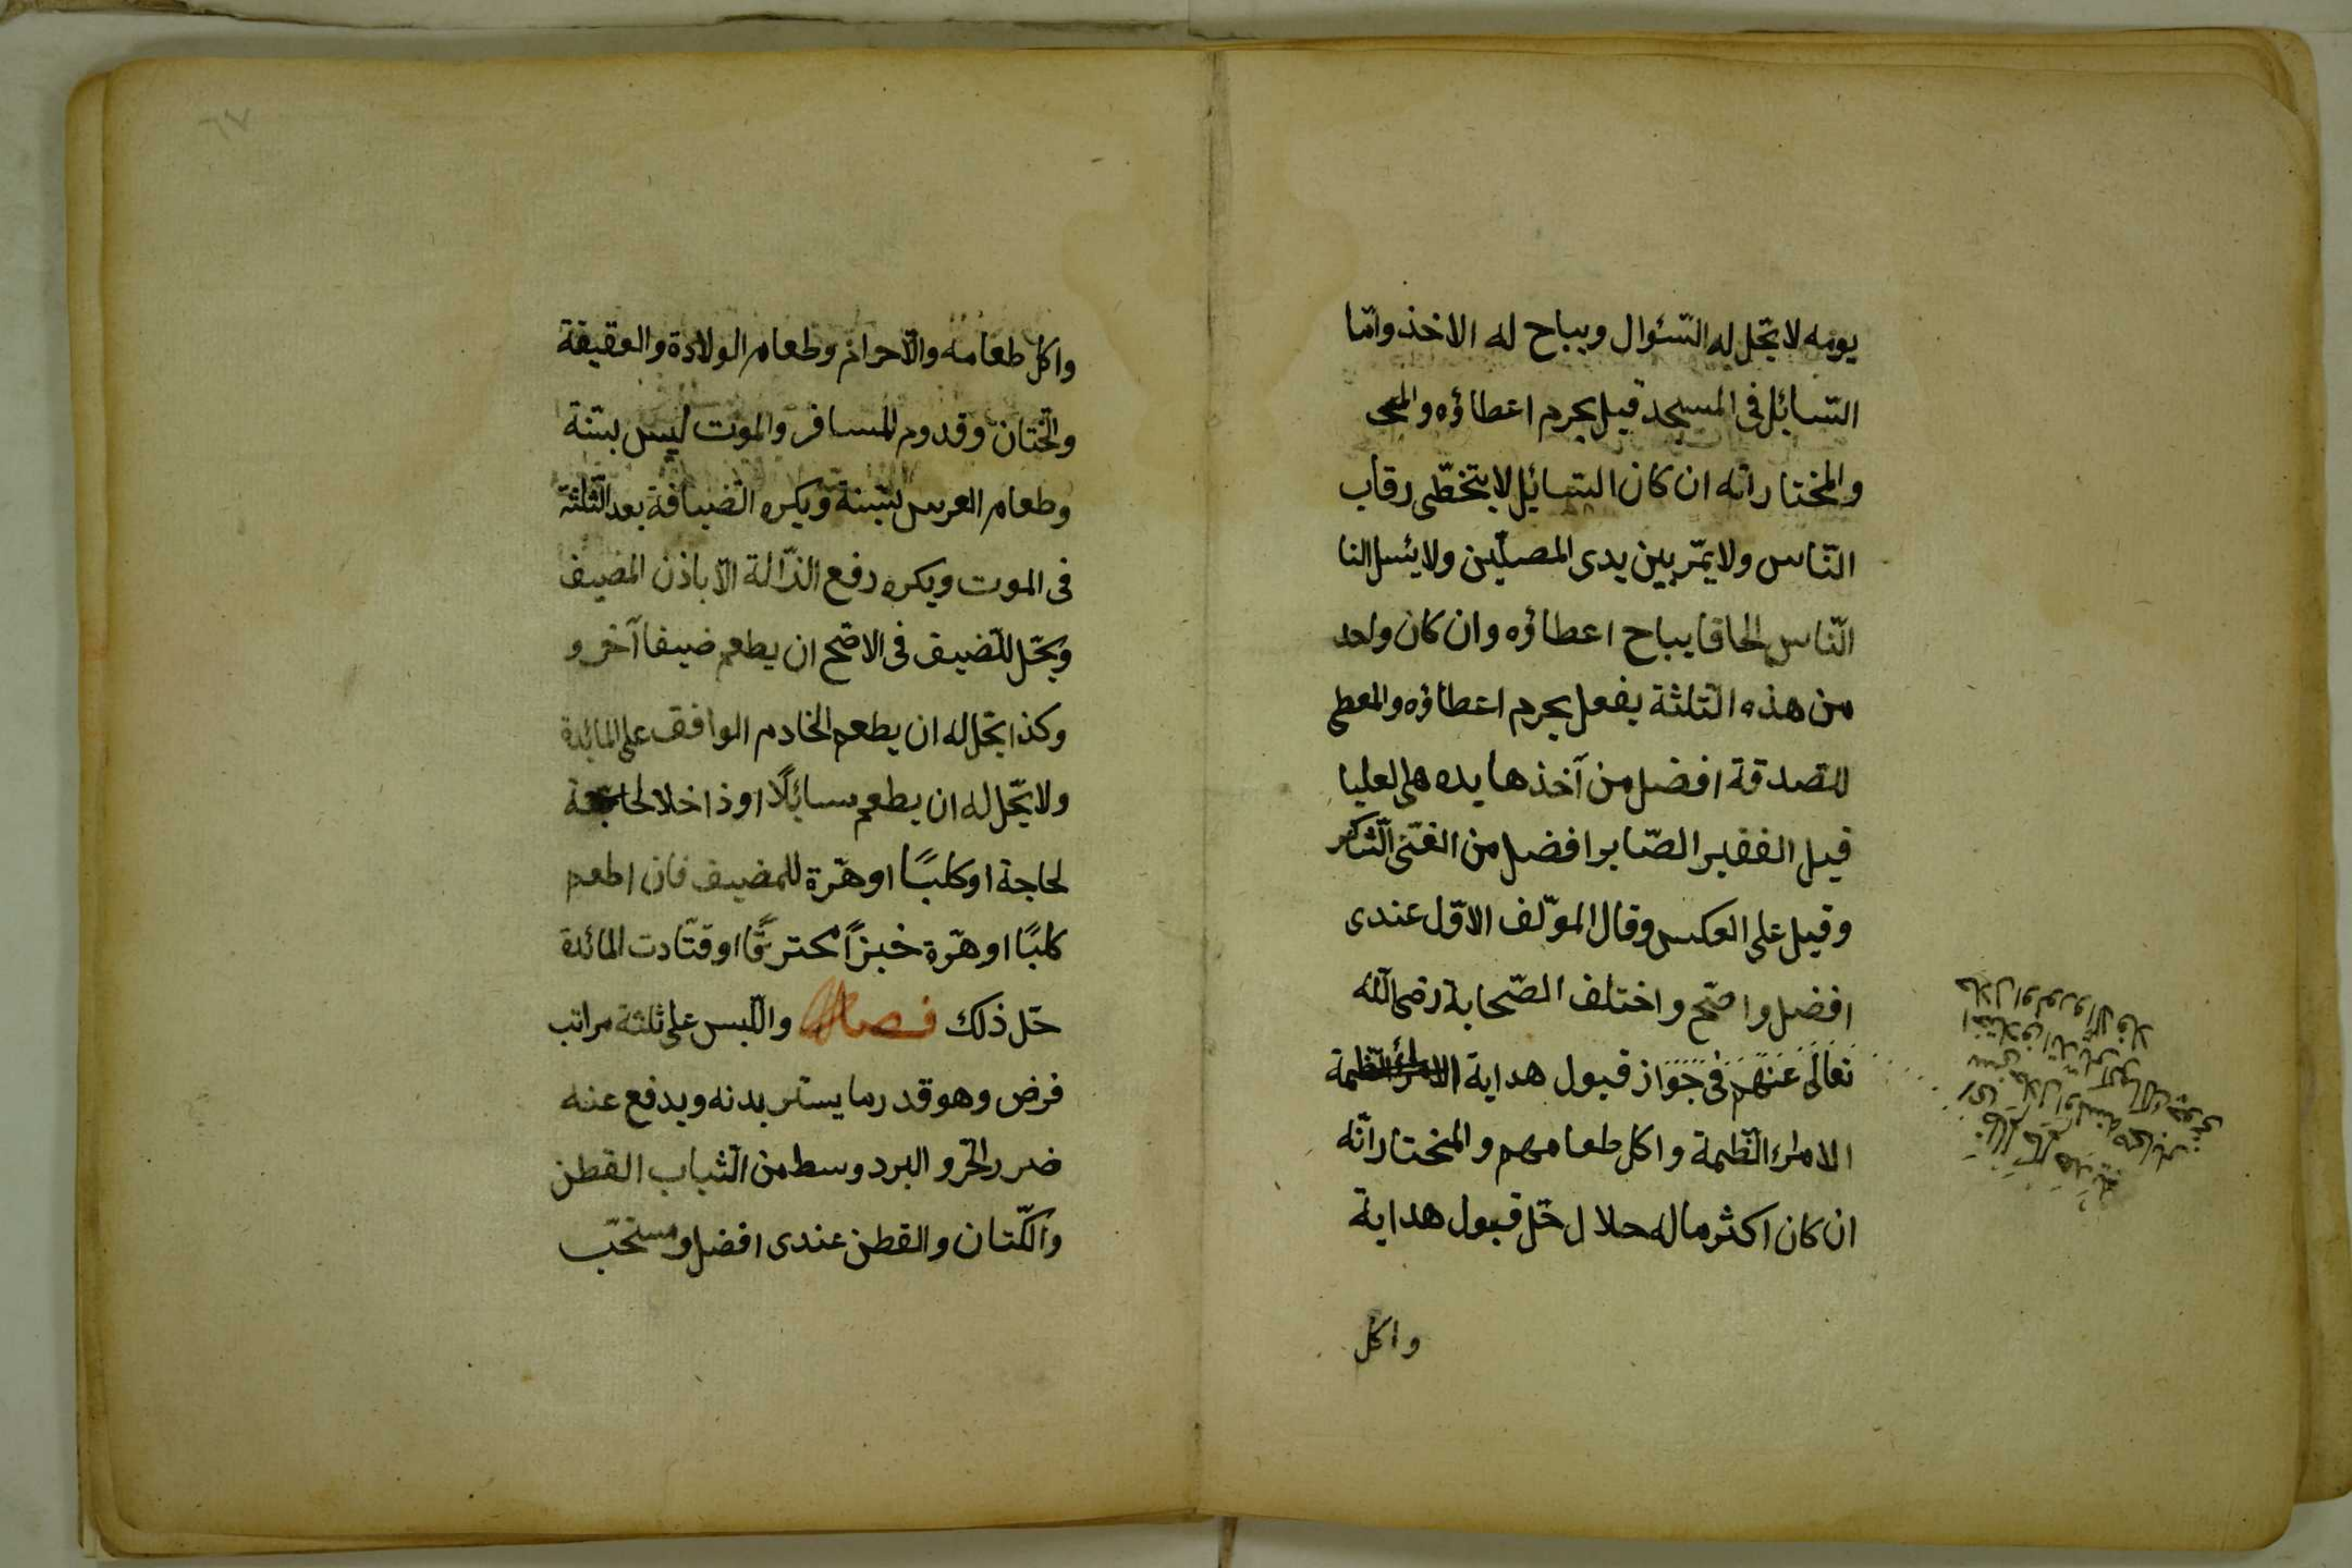 يومه لا يحّل له السّئوال ويباح له الاخذ وامّا
السّائل فى المسجد قيل يحرم اعطاؤه والمح
والمختار انّه ان كان السّائل لا يتخطّى رقاب
النّاس ولا يمّر بين يدى المصلّين ولا يئسل النا
النّاس الحاقا يباح اعطاؤه وان كان واحد
من هذه الثلثة يفعل يحرم اعطاؤه والمعطى
للصدقة افضل من آخذها يده هى العليا
قيل الفقير الصّابر افضل من الغنّى الشّاكر
وقيل على العكس وقال المؤلّف الاوّل عندى
افضل واصّح واختلف الصّحابة رضى اللّه
تعالى عنهم فى جواز قبول هداية الامراء الظلمة
الامراء الظّلمة واكل طعامهم والمختار انّه
ان كان اكثر ماله حلال حّل قبول هداية
واكل
واكل طعامه والّا حرام وطعام الولادة والعقيقة
والختان وقدوم المسافر والموت ليس بسّنة
وطعام العرس بسّنة ويكره الضيافة بعد الثّلثة
فى الموت ويكره رفع الذّالة الّا باذن المضيف
ويحّل للضيف فى الاصّح ان يطعم ضيفا آخر و
وكذا يحّل له ان يطعم الخادم الواقف على المائدة
ولا يحّل له ان يطعم سائلًا او ذا خلا لحاجة
لحاجة او كلبًا او هّرة للمضيف فان اطعم
كلبًا او هّرة خبزًا محترقًا او فتّات المائدة
حّل ذلك فصل واللّبس على ثلثة مراتب
فرض وهو قدر ما يستر بدنه ويدفع عنه
ضرر الحّر والبرد وسط من الثّياب القطن
والكّتان والقطن عندى افضل ومستحّب